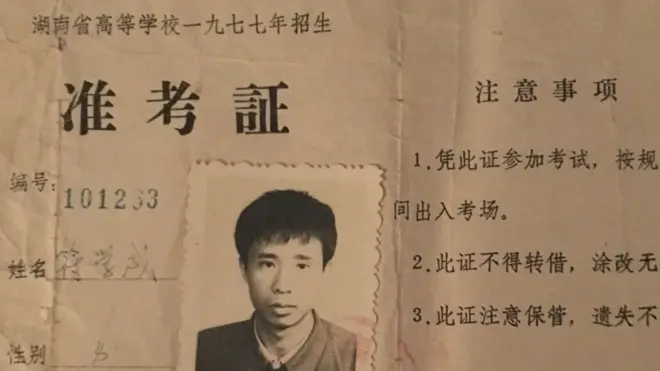 湖南省高等学校一九七七年招生
准考証
编号:101263
姓名
性别
注意事项
1.凭此证参加考试，按规
间出入考场。
2.此证不得转借，涂改无
3.此证注意保管，遗失不